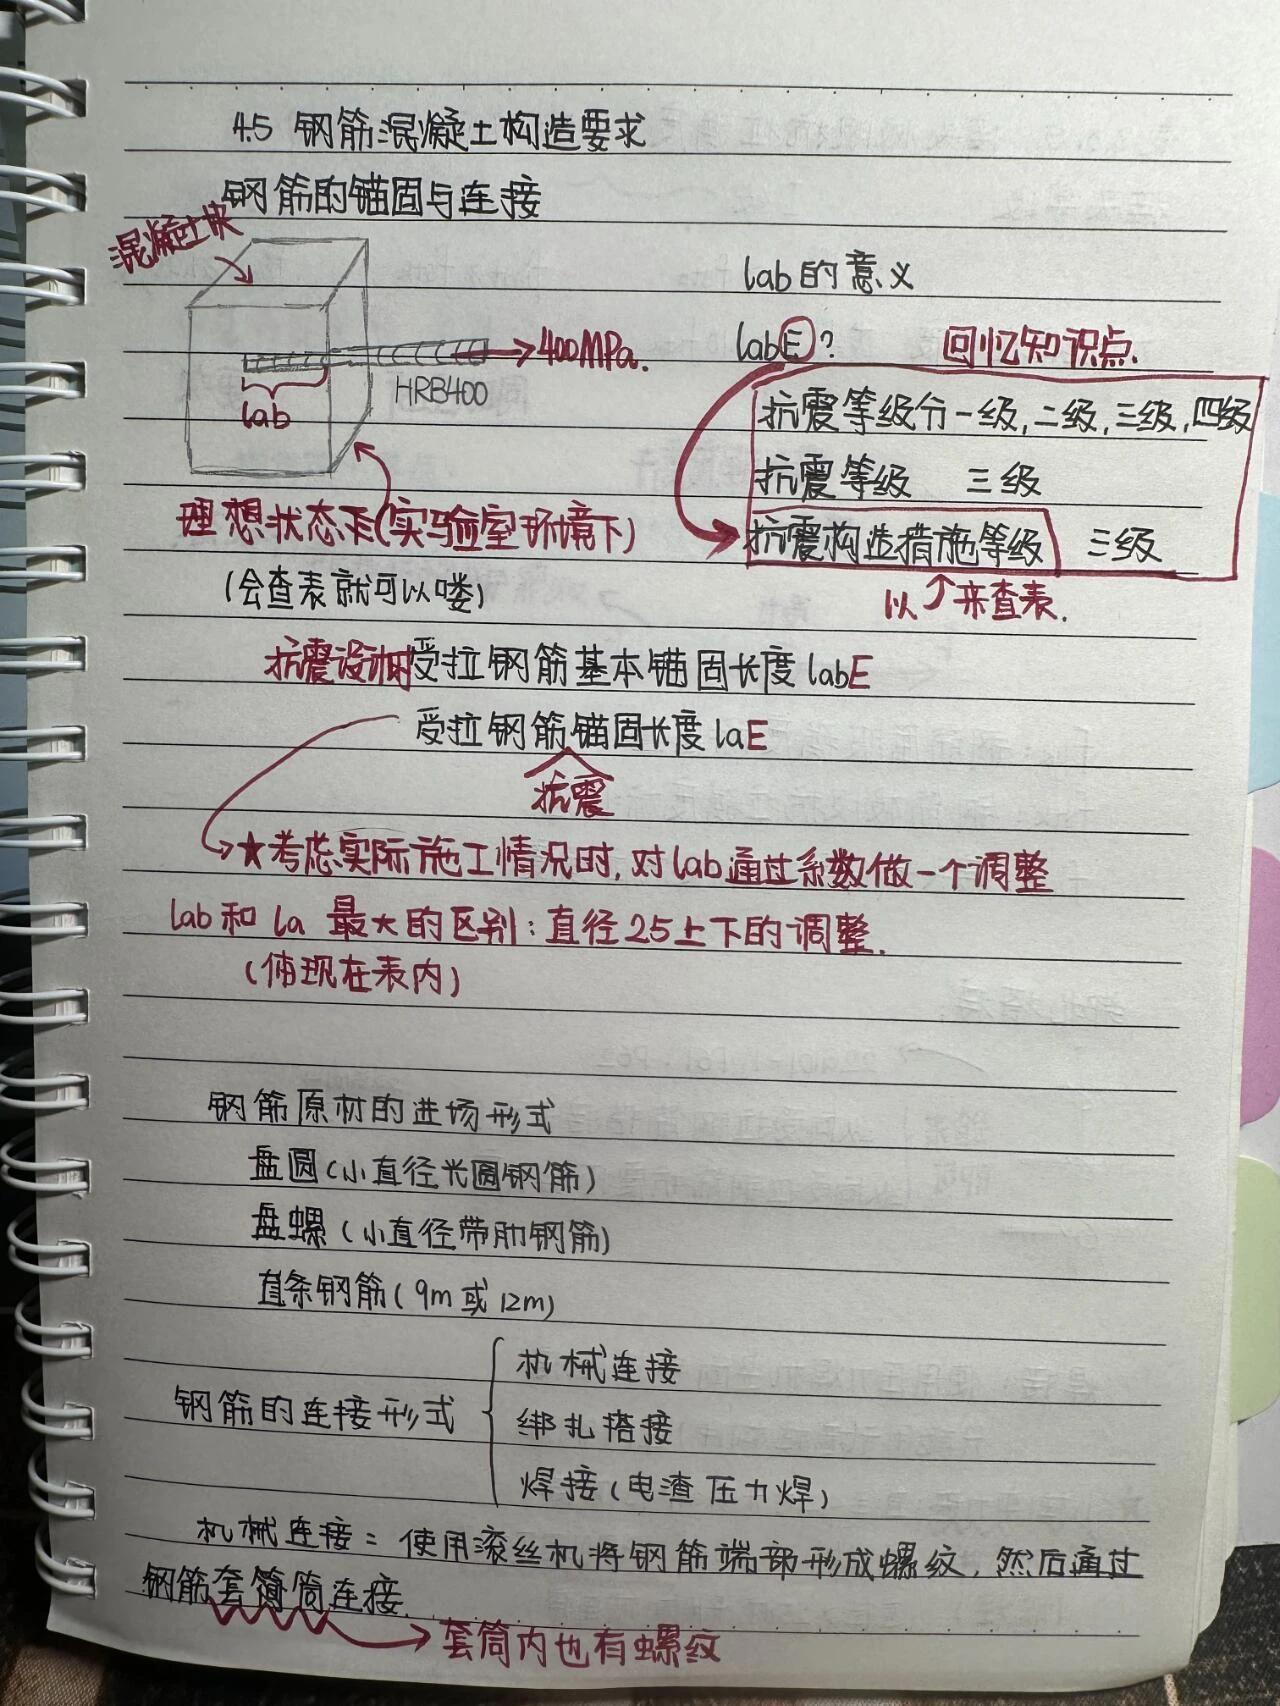 4.5 钢筋混凝土构造要求
钢筋的锚固与连接
混凝土块
lab的意义
labE?
回忆知识点.
400MPa.
HRB400
lab
抗震等级分一级,二级,三级,四级
抗震等级 三级
抗震构造措施等级 三级
以↑来查表.
理想状态下(实验室环境下)
(会查表就可以喽)
抗震设计时受拉钢筋基本锚固长度labE
受拉钢筋锚固长度laE
抗震
★考虑实际施工情况时,对lab通过系数做一个调整
lab和la 最大的区别:直径25上下的调整.
(体现在表内)
钢筋原材的进场形式
盘圆(小直径光圆钢筋)
盘螺(小直径带肋钢筋)
直条钢筋(9m或12m)
钢筋的连接形式
机械连接
绑扎搭接
焊接(电渣压力焊)
机械连接:使用滚丝机将钢筋端部形成螺纹,然后通过
钢筋套筒连接.
套筒内也有螺纹